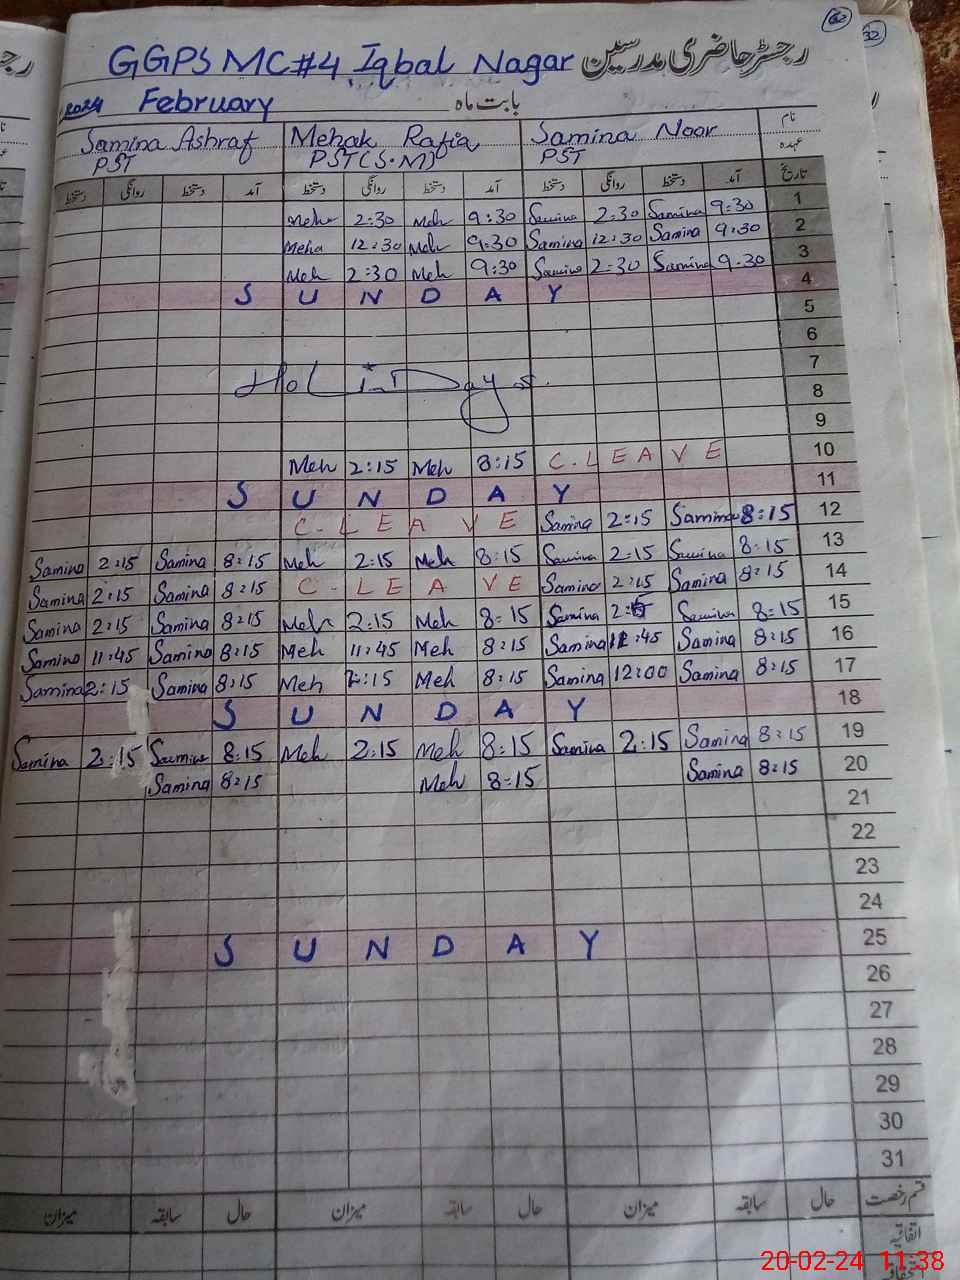 62
32
GGPS MC#4 Iqbal Nagar رجسٹر حاضری مدرسین
2024 February بابت ماہ
Samina Ashraf Mehak Rafia Samina Noor نام
PST PST (S.M) PST عہدہ
دستخط روانگی دستخط آمد دستخط روانگی دستخط آمد دستخط روانگی دستخط آمد تاریخ
Meh 2:30 Meh 9:30 Samina 2:30 Samina 9:30 1
Meha 12:30 Meh 9:30 Samina 12:30 Samina 9:30 2
Meh 2:30 Meh 9:30 Samina 2:30 Samina 9:30 3
S U N D A Y 4
5
6
7
8
9
Meh 2:15 Meh 8:15 C.LEAVE 10
S U N D A Y 11
C-LEAVE Samina 2:15 Samina 8:15 12
Samina 2:15 Samina 8:15 Meh 2:15 Meh 8:15 Samina 2:15 Samina 8:15 13
Samina 2:15 Samina 8:15 C-LEAVE Samina 2:15 Samina 8:15 14
Samina 2:15 Samina 8:15 Meh 2:15 Meh 8:15 Samina Samina 8:15 15
Samina 11:45 Samina 8:15 Meh 11:45 Meh 8:15 Samina Samina 8:15 16
Samina 2:15 Samina 8:15 Meh 2:15 Meh 8:15 Samina 12:00 Samina 8:15 17
S U N D A Y 18
Samina 2:15 Samina 8:15 Meh 2:15 Meh 8:15 Samina 2:15 Samina 8:15 19
Samina 8:15 Meh 8:15 Samina 8:15 20
21
22
23
24
S U N D A Y 25
26
27
28
29
30
31
میزان سابقہ حال میزان سابقہ حال میزان سابقہ حال قسم رخصت
اتفاقیہ
20-02-24 11:38